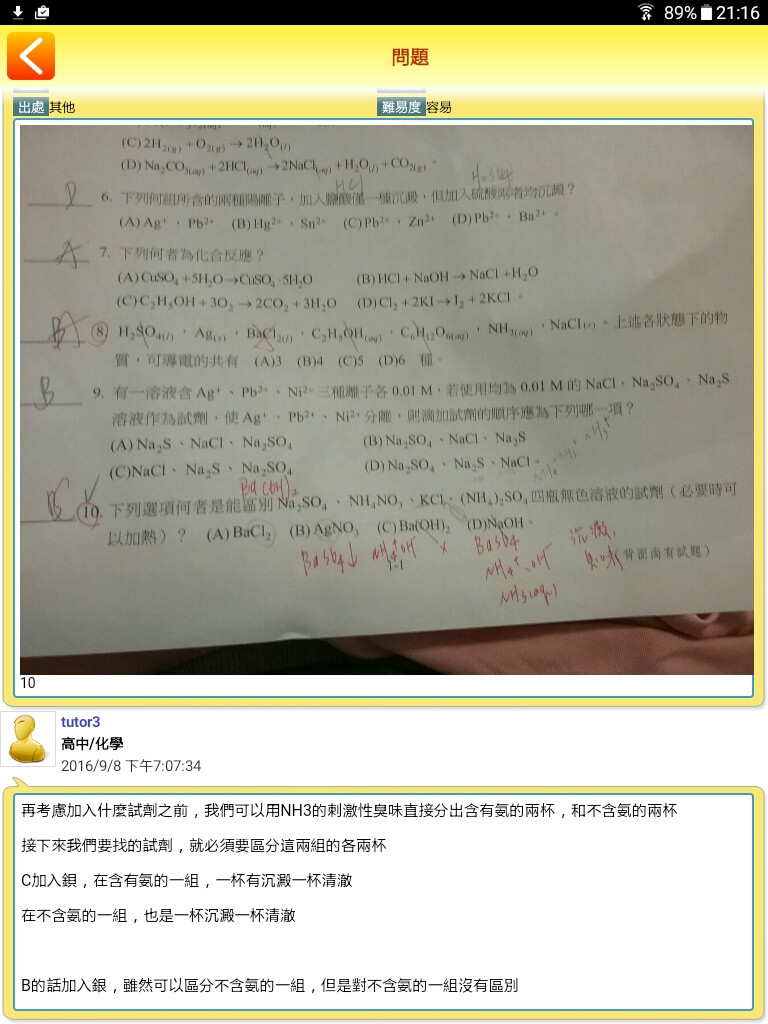 89% 21:16
問題
出處 其他 難易度 容易
(C) 2H2(g) + O2(g) → 2H2O(l)
(D) Na2CO3(aq) + 2HCl(aq) → 2NaCl(aq) + H2O(l) + CO2(g)。
HCl H2SO4
D 6. 下列何組所含的兩種陽離子，加入鹽酸僅一種沉澱，但加入硫酸兩者均沉澱？
(A) Ag+、Pb2+ (B) Hg2+、Sn2+ (C) Pb2+、Zn2+ (D) Pb2+、Ba2+。
A 7. 下列何者為化合反應？
(A) CuSO4 + 5H2O → CuSO4·5H2O (B) HCl + NaOH → NaCl + H2O
(C) C2H5OH + 3O2 → 2CO2 + 3H2O (D) Cl2 + 2KI → I2 + 2KCl。
8 H2SO4(l)，Ag(s)，BaCl2(l)，C2H5OH(aq)，C6H12O6(aq)，NH3(aq)，NaCl(s)。上述各狀態下的物
質，可導電的共有 (A)3 (B)4 (C)5 (D)6 種。
B 9. 有一溶液含 Ag+、Pb2+、Ni2+ 三種離子各 0.01 M，若使用均為 0.01 M 的 NaCl、Na2SO4、Na2S
溶液作為試劑，使 Ag+、Pb2+、Ni2+ 分離，則滴加試劑的順序應為下列哪一項？
(A) Na2S、NaCl、Na2SO4 (B) Na2SO4、NaCl、Na2S
(C) NaCl、Na2S、Na2SO4 (D) Na2SO4、Na2S、NaCl。
Ba(OH)2
B C 10. 下列選項何者是能區別 Na2SO4、NH4NO3、KCl、(NH4)2SO4 四瓶無色溶液的試劑（必要時可
以加熱）？ (A) BaCl2 (B) AgNO3 (C) Ba(OH)2 (D) NaOH。
BaSO4↓ NH4+OH- x BaSO4 沉澱，
NH4+、OH- 臭味 （背面尚有試題）
NH3(aq)
10
tutor3
高中/化學
2016/9/8 下午7:07:34
再考慮加入什麼試劑之前，我們可以用NH3的刺激性臭味直接分出含有氨的兩杯，和不含氨的兩杯
接下來我們要找的試劑，就必須要區分這兩組的各兩杯
C加入鋇，在含有氨的一組，一杯有沉澱一杯清澈
在不含氨的一組，也是一杯沉澱一杯清澈
B的話加入銀，雖然可以區分不含氨的一組，但是對不含氨的一組沒有區別